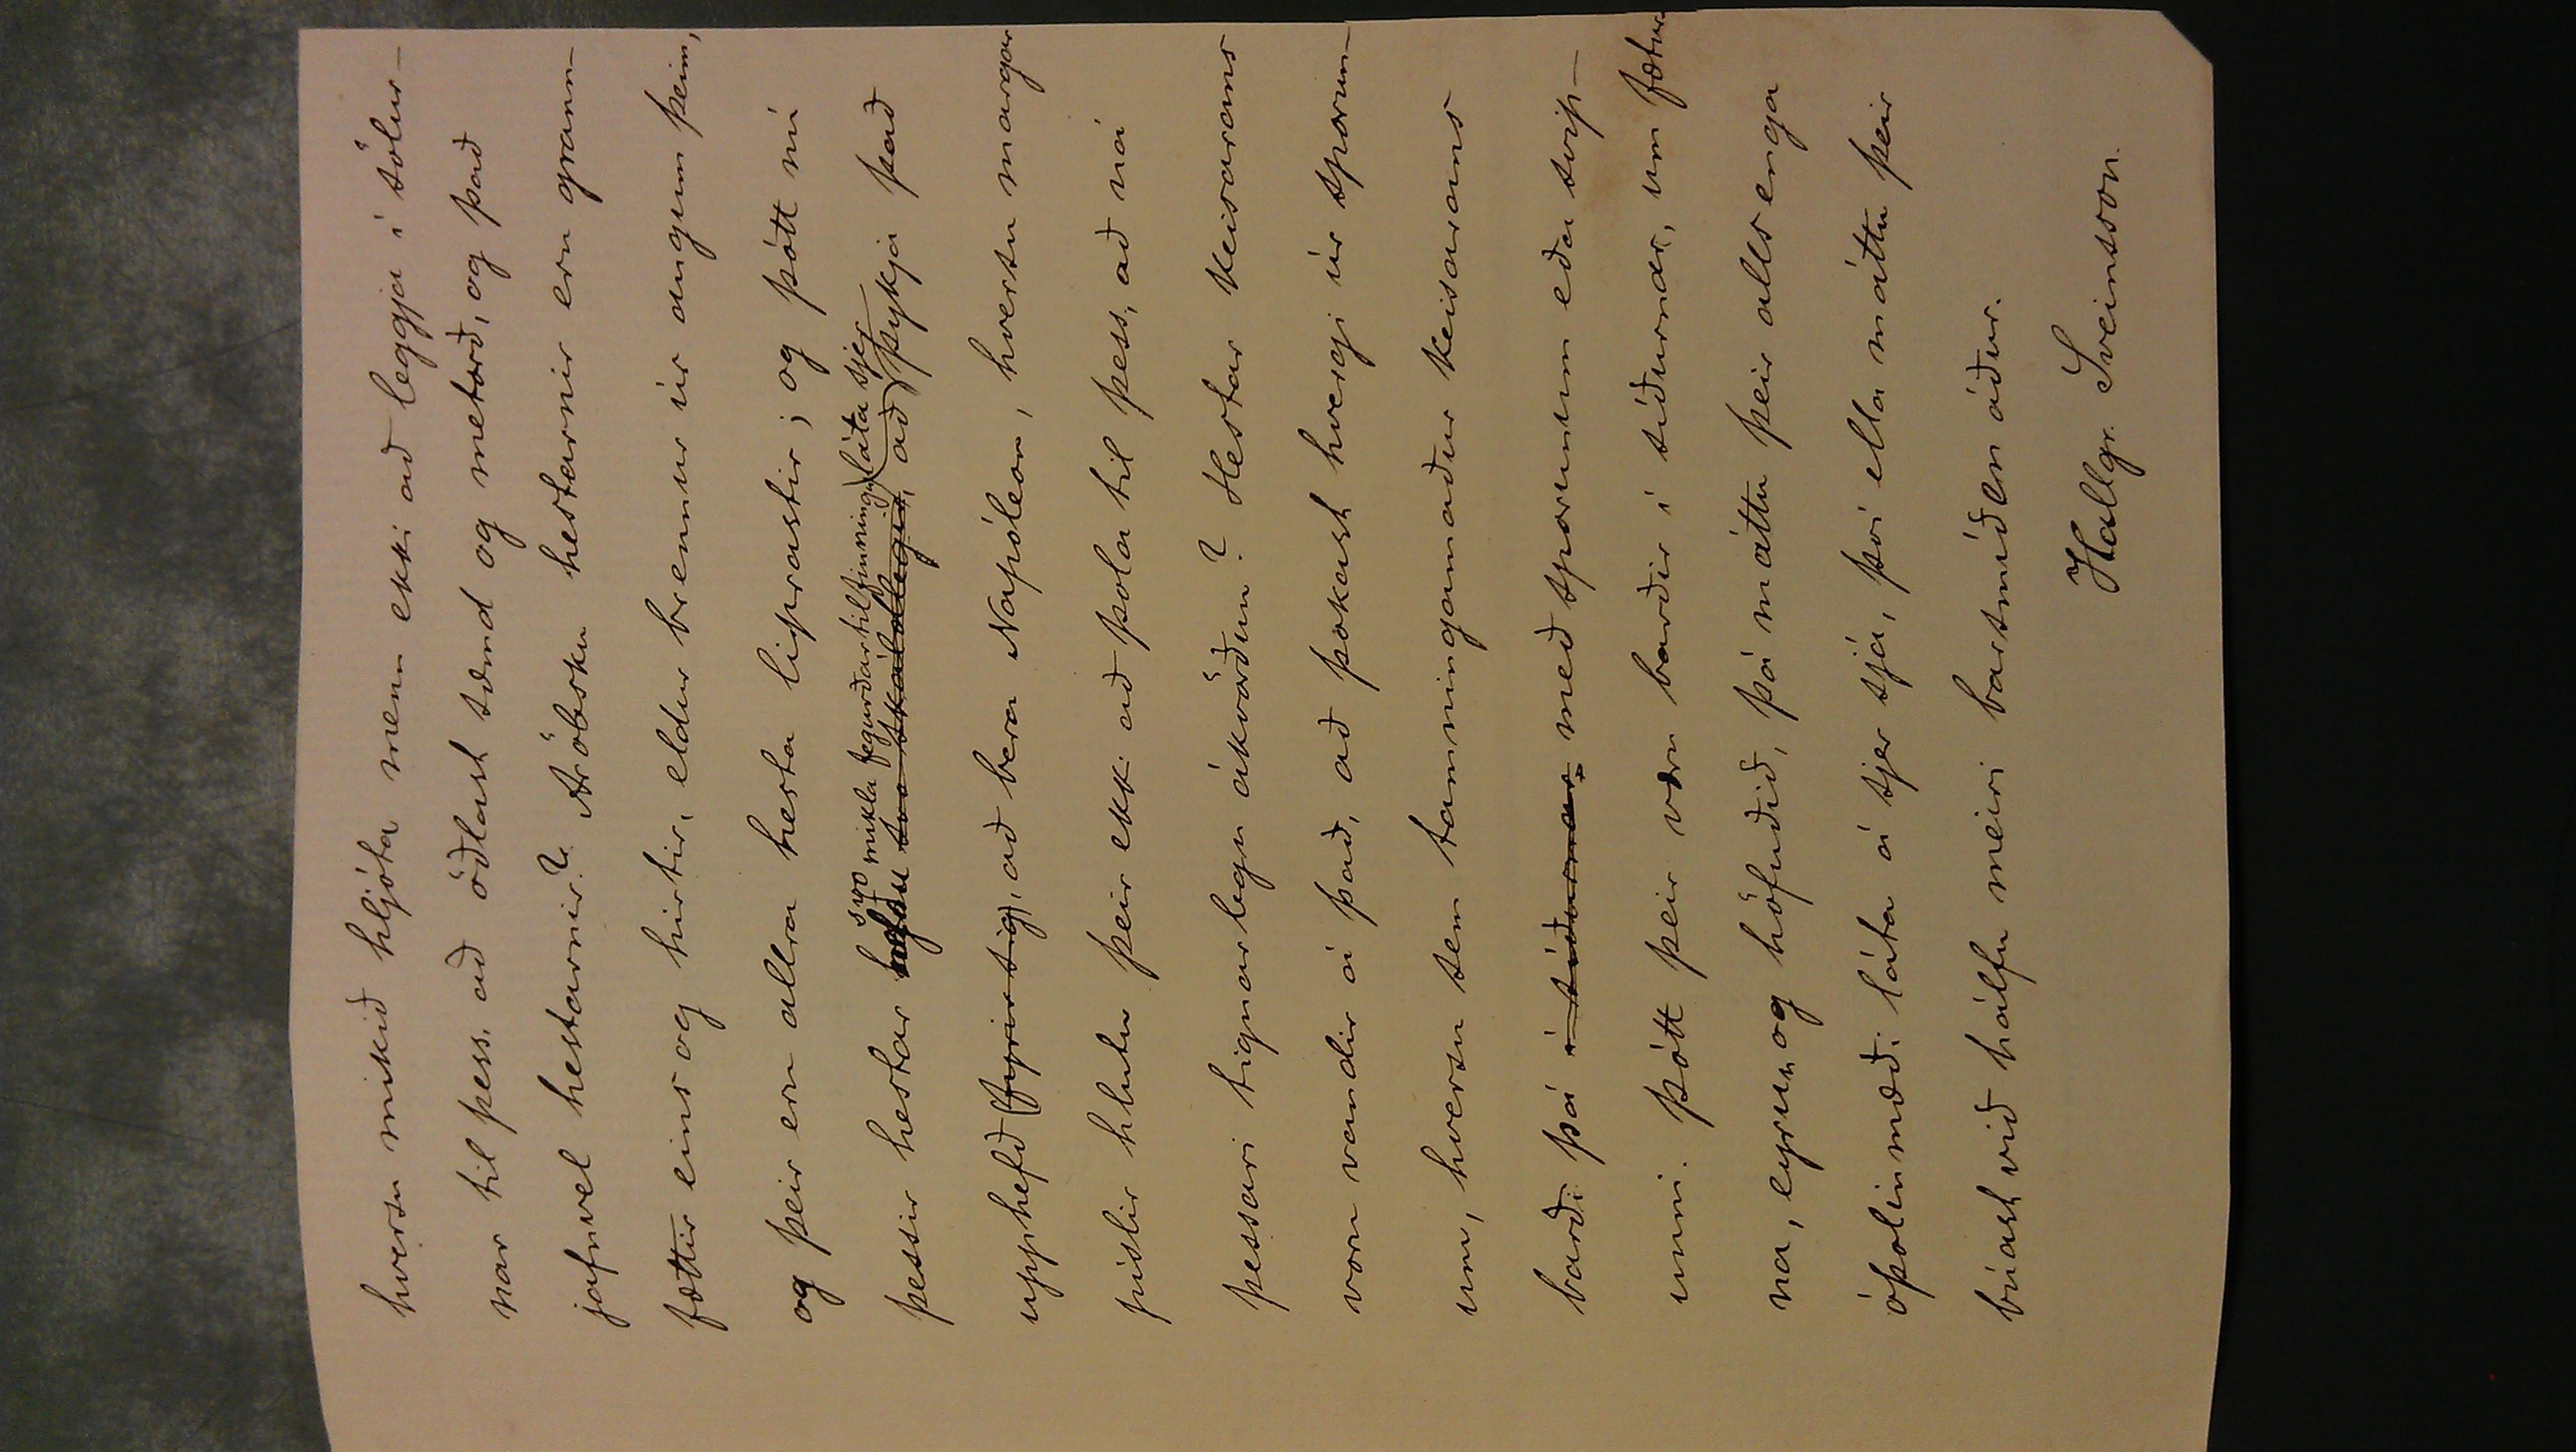 hversu mikið hljóta menn ekki að leggja í sölur-
nar til þess, að öðlast sæmd og metorð, og það
jafnvel hestarnir? Aröbsku hestarnir eru grann-
fættir eins og hirtir, eldur brennur úr augum þeim,
og þeir eru allra hesta liprastir; og þótt nú
svo mikla fegurðartilfinningu láta sjer
þessir hestar hafðu svo skáldlegir, að þykja það
upphefð (fyrir sig), að bera Napóleon, hversu margar
píslir hlutu þeir ekki að þola til þess, að ná
þessari tignarlegu ákvörðun? Hestar keisarans
voru vandir á það, að þokast hvergi úr sporun-
um, hversu sem tamningamaður keisarans
barði þá í síðurnar með sporunum eða svip-
unni. Þótt þeir væru barðir í síðurnar, um fætur-
na, eyru, og höfuðið, þá máttu þeir alls enga
óþolinmæði láta á sjer sjá, því ella máttu þeir
búast við hálfu meiri barsmíðum áður.
Hallgr. Sveinsson.